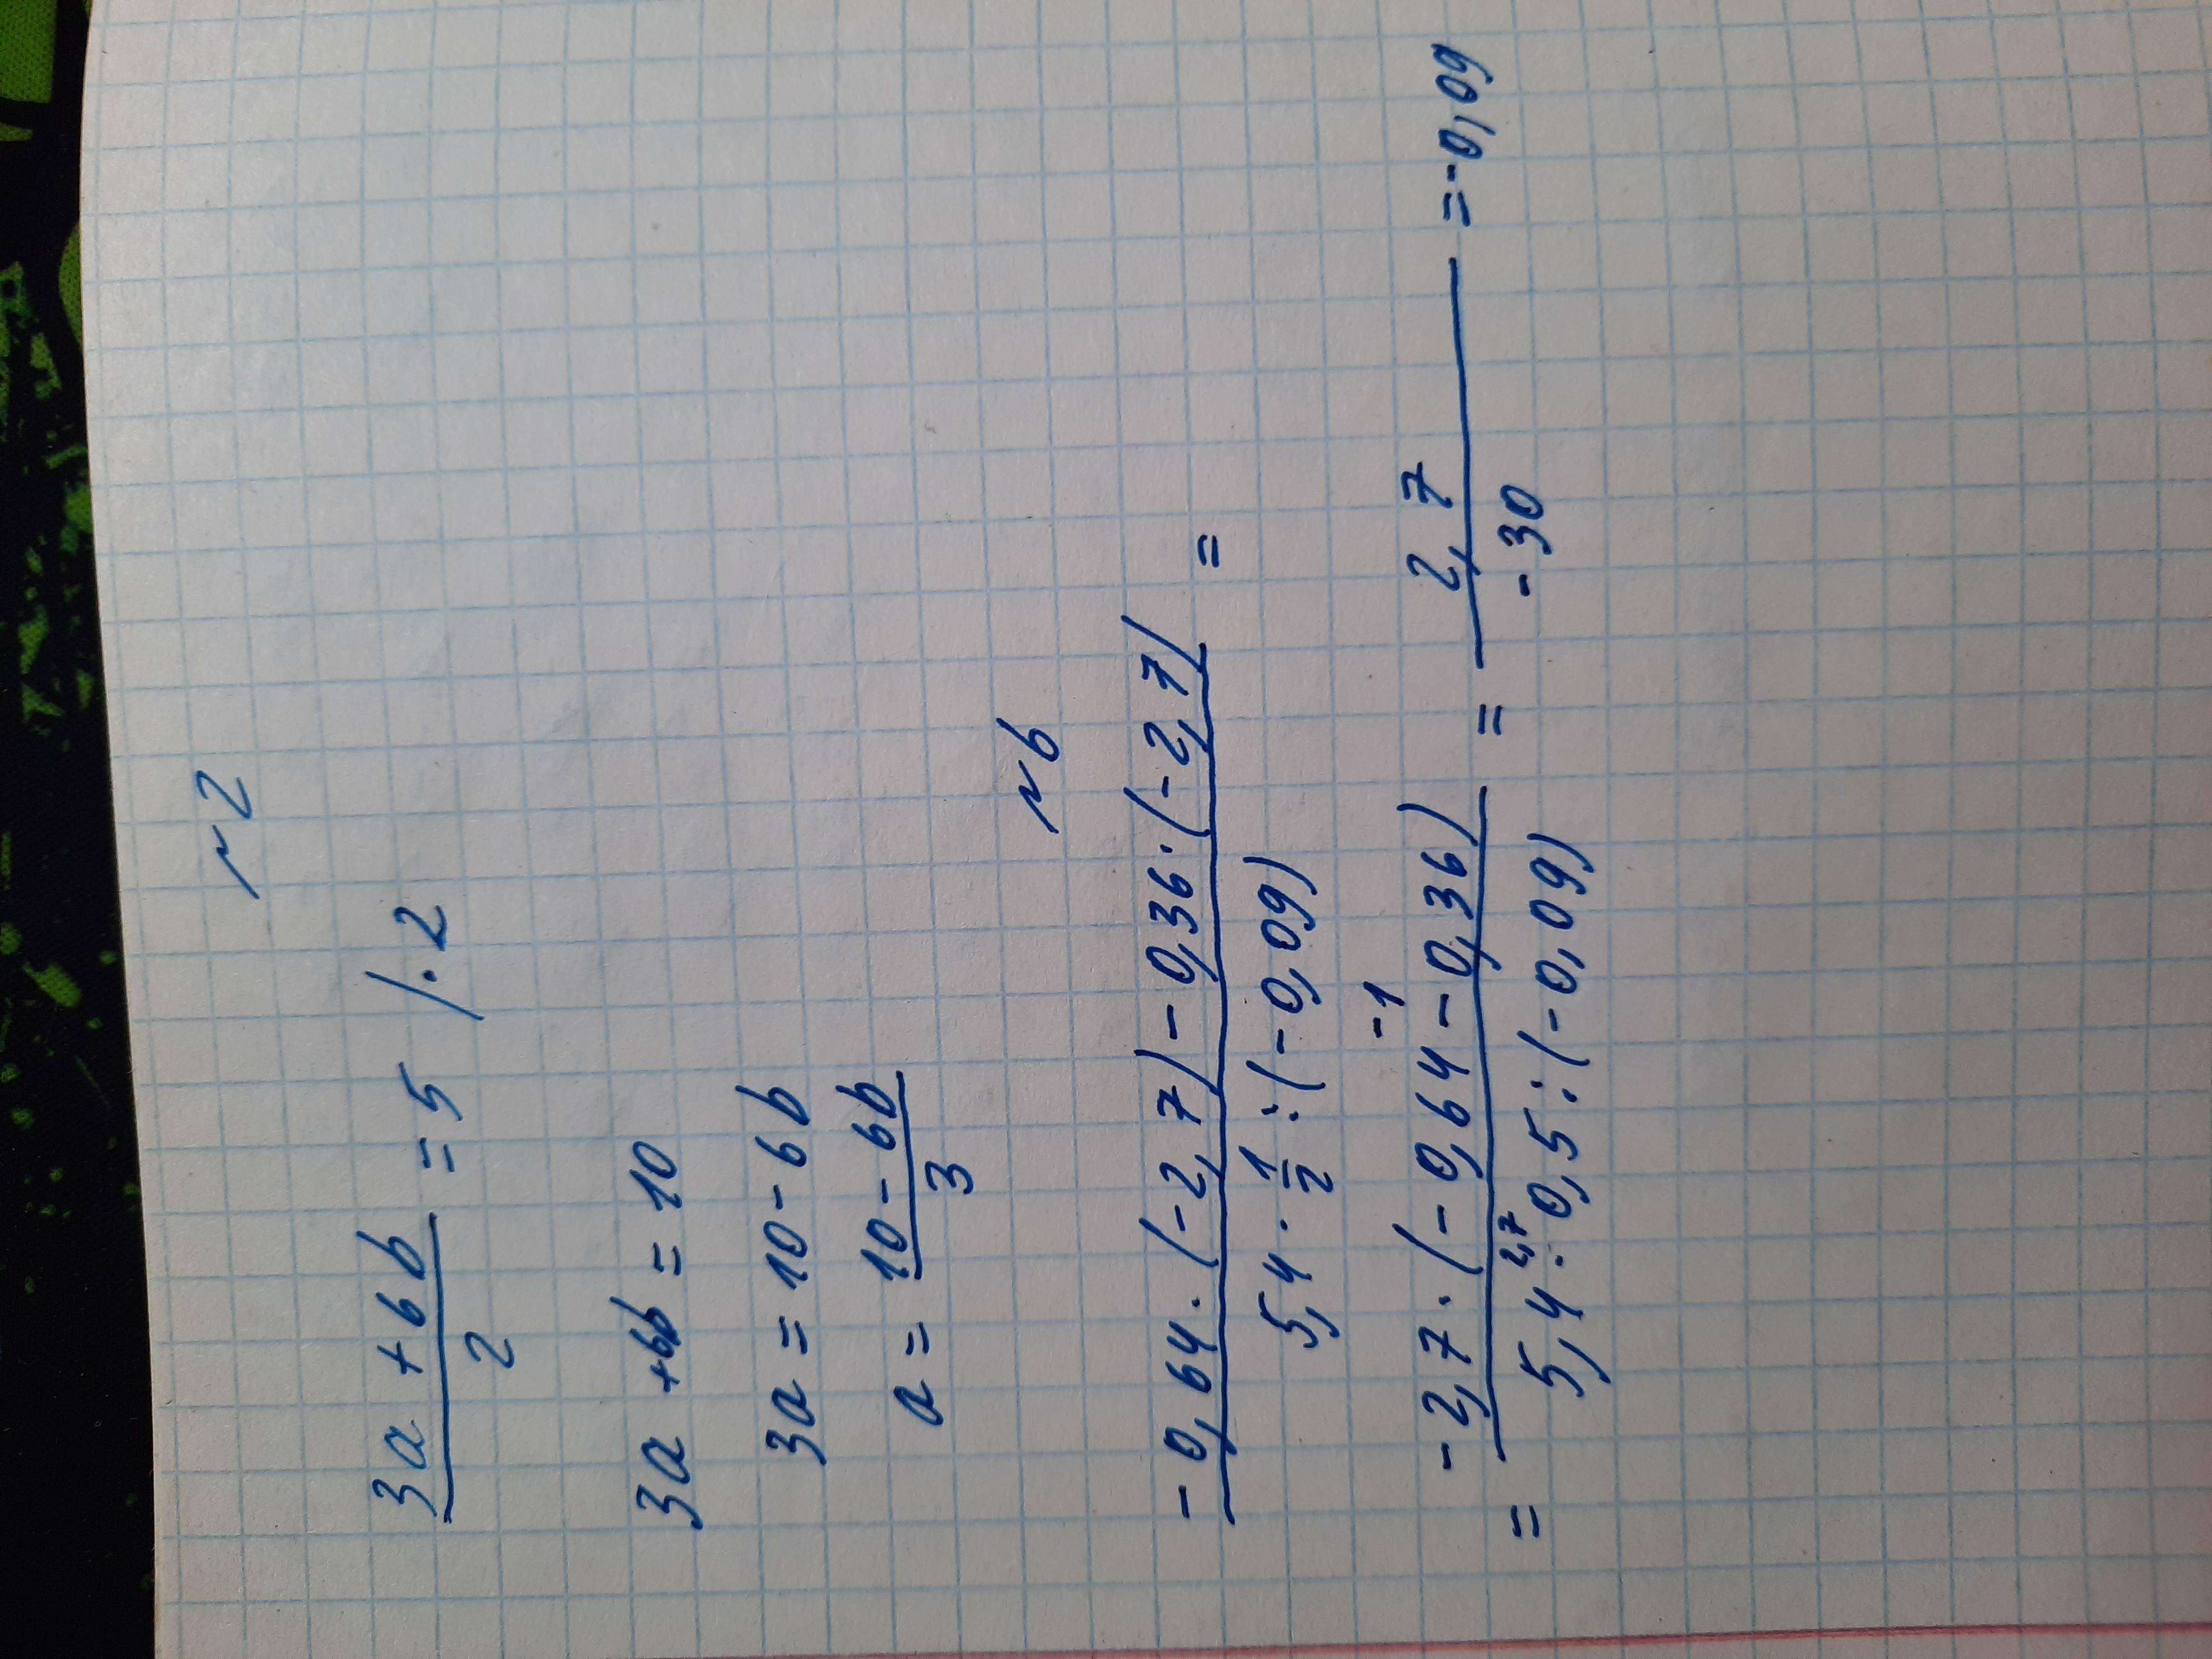 №2
(3a + 6b)/2 = 5 /·2
3a + 6b = 10
3a = 10 - 6b
a = (10 - 6b)/3
№6
(-0,64 · (-2,7) - 0,36 · (-2,7))/(5,4 · 1/2 : (-0,09)) =
-1
= (-2,7 · (-0,64 - 0,36))/(5,4 · 0,5 : (-0,09)) = 2,7/-30 = -0,09
2,7